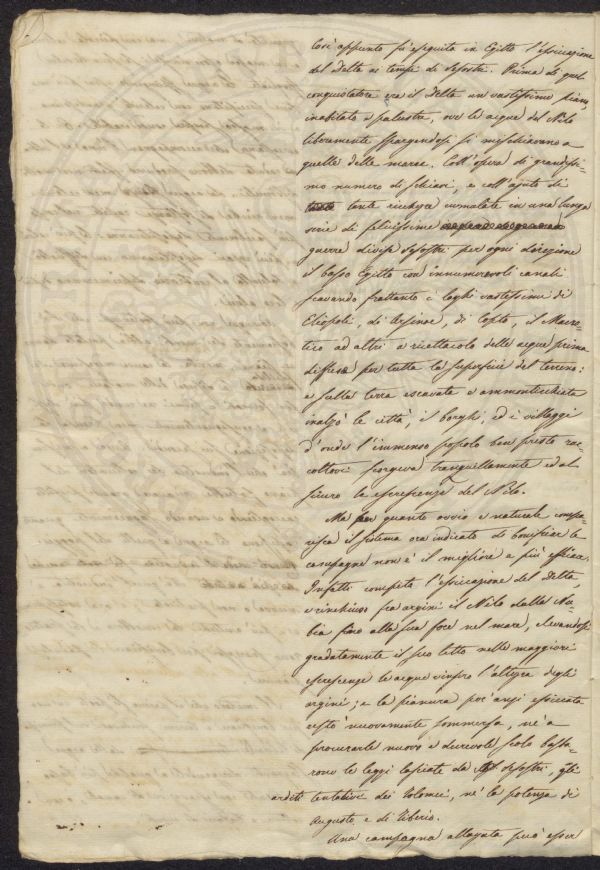 Così appunto fu eseguita in Egitto l'essicazione
del Delta ai tempi di Sesostri. Prima di quel
conquistatore era il Delta un vastissimo piano
inabitato e palustre, ove le acque del Nilo
liberamente spargendosi si mischiavano a
quelle delle maree. Coll'opera di grandissi-
mo numero di schiavi, e coll'ajuto di
tante ricchezze cumulate in una lunga
serie di felicissime
guerre divise Sesostri per ogni direzione
il basso Egitto con innumerevoli canali
scavando frattanto i laghi vastissimi di
Eliopoli, di Arsinoe, di Copto, il Mareo-
tico ed altri a ricettacolo delle acque prima
diffuse per tutta la superficie del terreno:
e sulla terra escavata e ammonticchiata
inalzò le città, i borghi, ed i villaggi
d'onde l'immenso popolo ben presto rac-
coltovi scorgeva tranquillamente ed al
sicuro la escrescenza del Nilo.
Ma per quanto ovvio e naturale compa-
risca il sistema ora indicato di bonificar le
campagne non è il migliore e più efficace.
Infatti compita l'essicazione del Delta,
e rinchiuso fra argini il Nilo dalla Nu-
bia fino alla sua foce nel mare, elevandosi
gradatamente il suo letto nelle maggiori
escrescenze le acque vinsero l'altezza degli
argini; e la pianura poc'anzi essiccata
restò nuovamente sommersa, nè a
procurarle nuovo e durevole scolo basta-
rono le leggi lasciate da Sesostri, gli
arditi tentativi dei Tolomei, nè la potenza di
Augusto e di Tiberio.
Una campagna allagata può esser